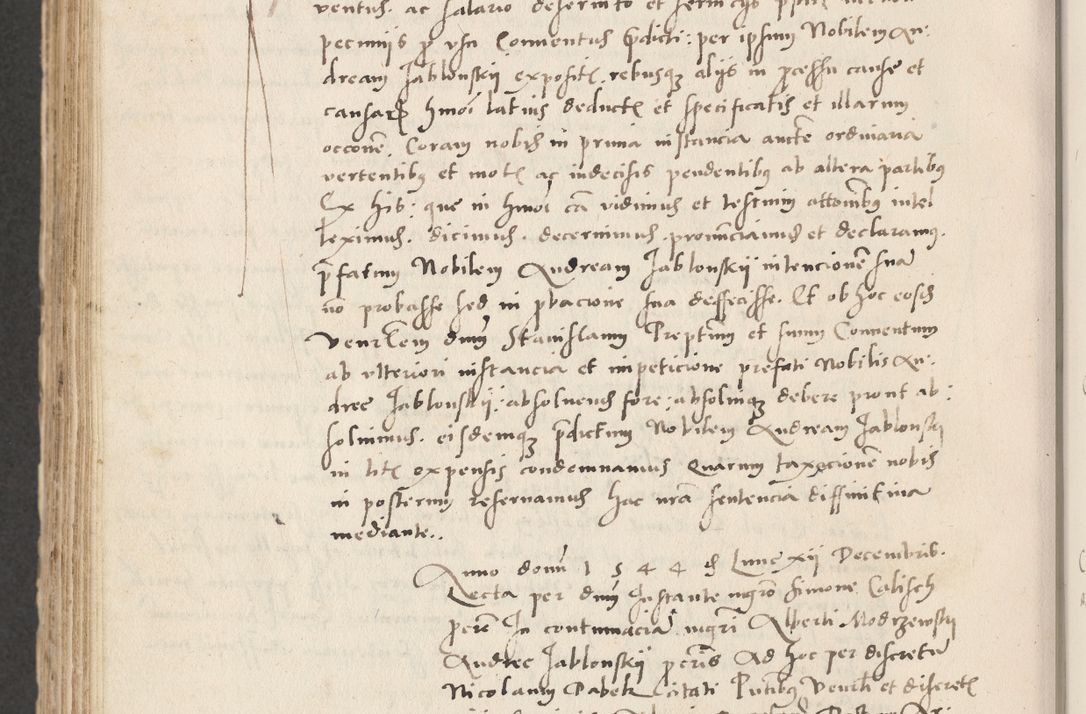 ventus ac salario deservito et serviciis
pecuniis p usu Conventus pdicti: per ipsum Nobilem An:
dream Jablonskij exposit rebusqz alijs in pcessu cause et
causar hmoi latius deduct et specificatis et illarum
occone. Coram nobis in prima instancia aucte ordinaria
vertentibq et mot ac indecisis pendentibq ab altera partibq
Ex his: que in hmoi ca vidimus et testium attoibq intel
leximus. dicimus. decernimus. pronunciamus et declaramq.
pfatum Nobilem Andream Jablonskij intencione sua
no probasse sed in pbacione sua deffecisse. Et ob hoc eosd
venerlem dnum Stanislaum Preptum et suum Conventum
ab ulteriori instancia et impeticione prefati Nobilis An:
dree Jablonskij: absolvend fore: absolviqz debere prout ab:
solvimus. eisdemqz pdictum Nobilem Andream Jablonskij
in lit expensis condemnamus Quarum taxacione nobis
in posterum reservamus hac nra sentencia diffinitiva
mediante..
Anno domi 1544 d Lune xij Decembris.
Lecta per dnu Instante mgro Simone Calisch
pcre In contumacia mgri Alberti Modrzewskij
Andree Jablonskij pcris Ad hoc per discretu
Nicolaum Dabek citati Pntibq Venerli et discret